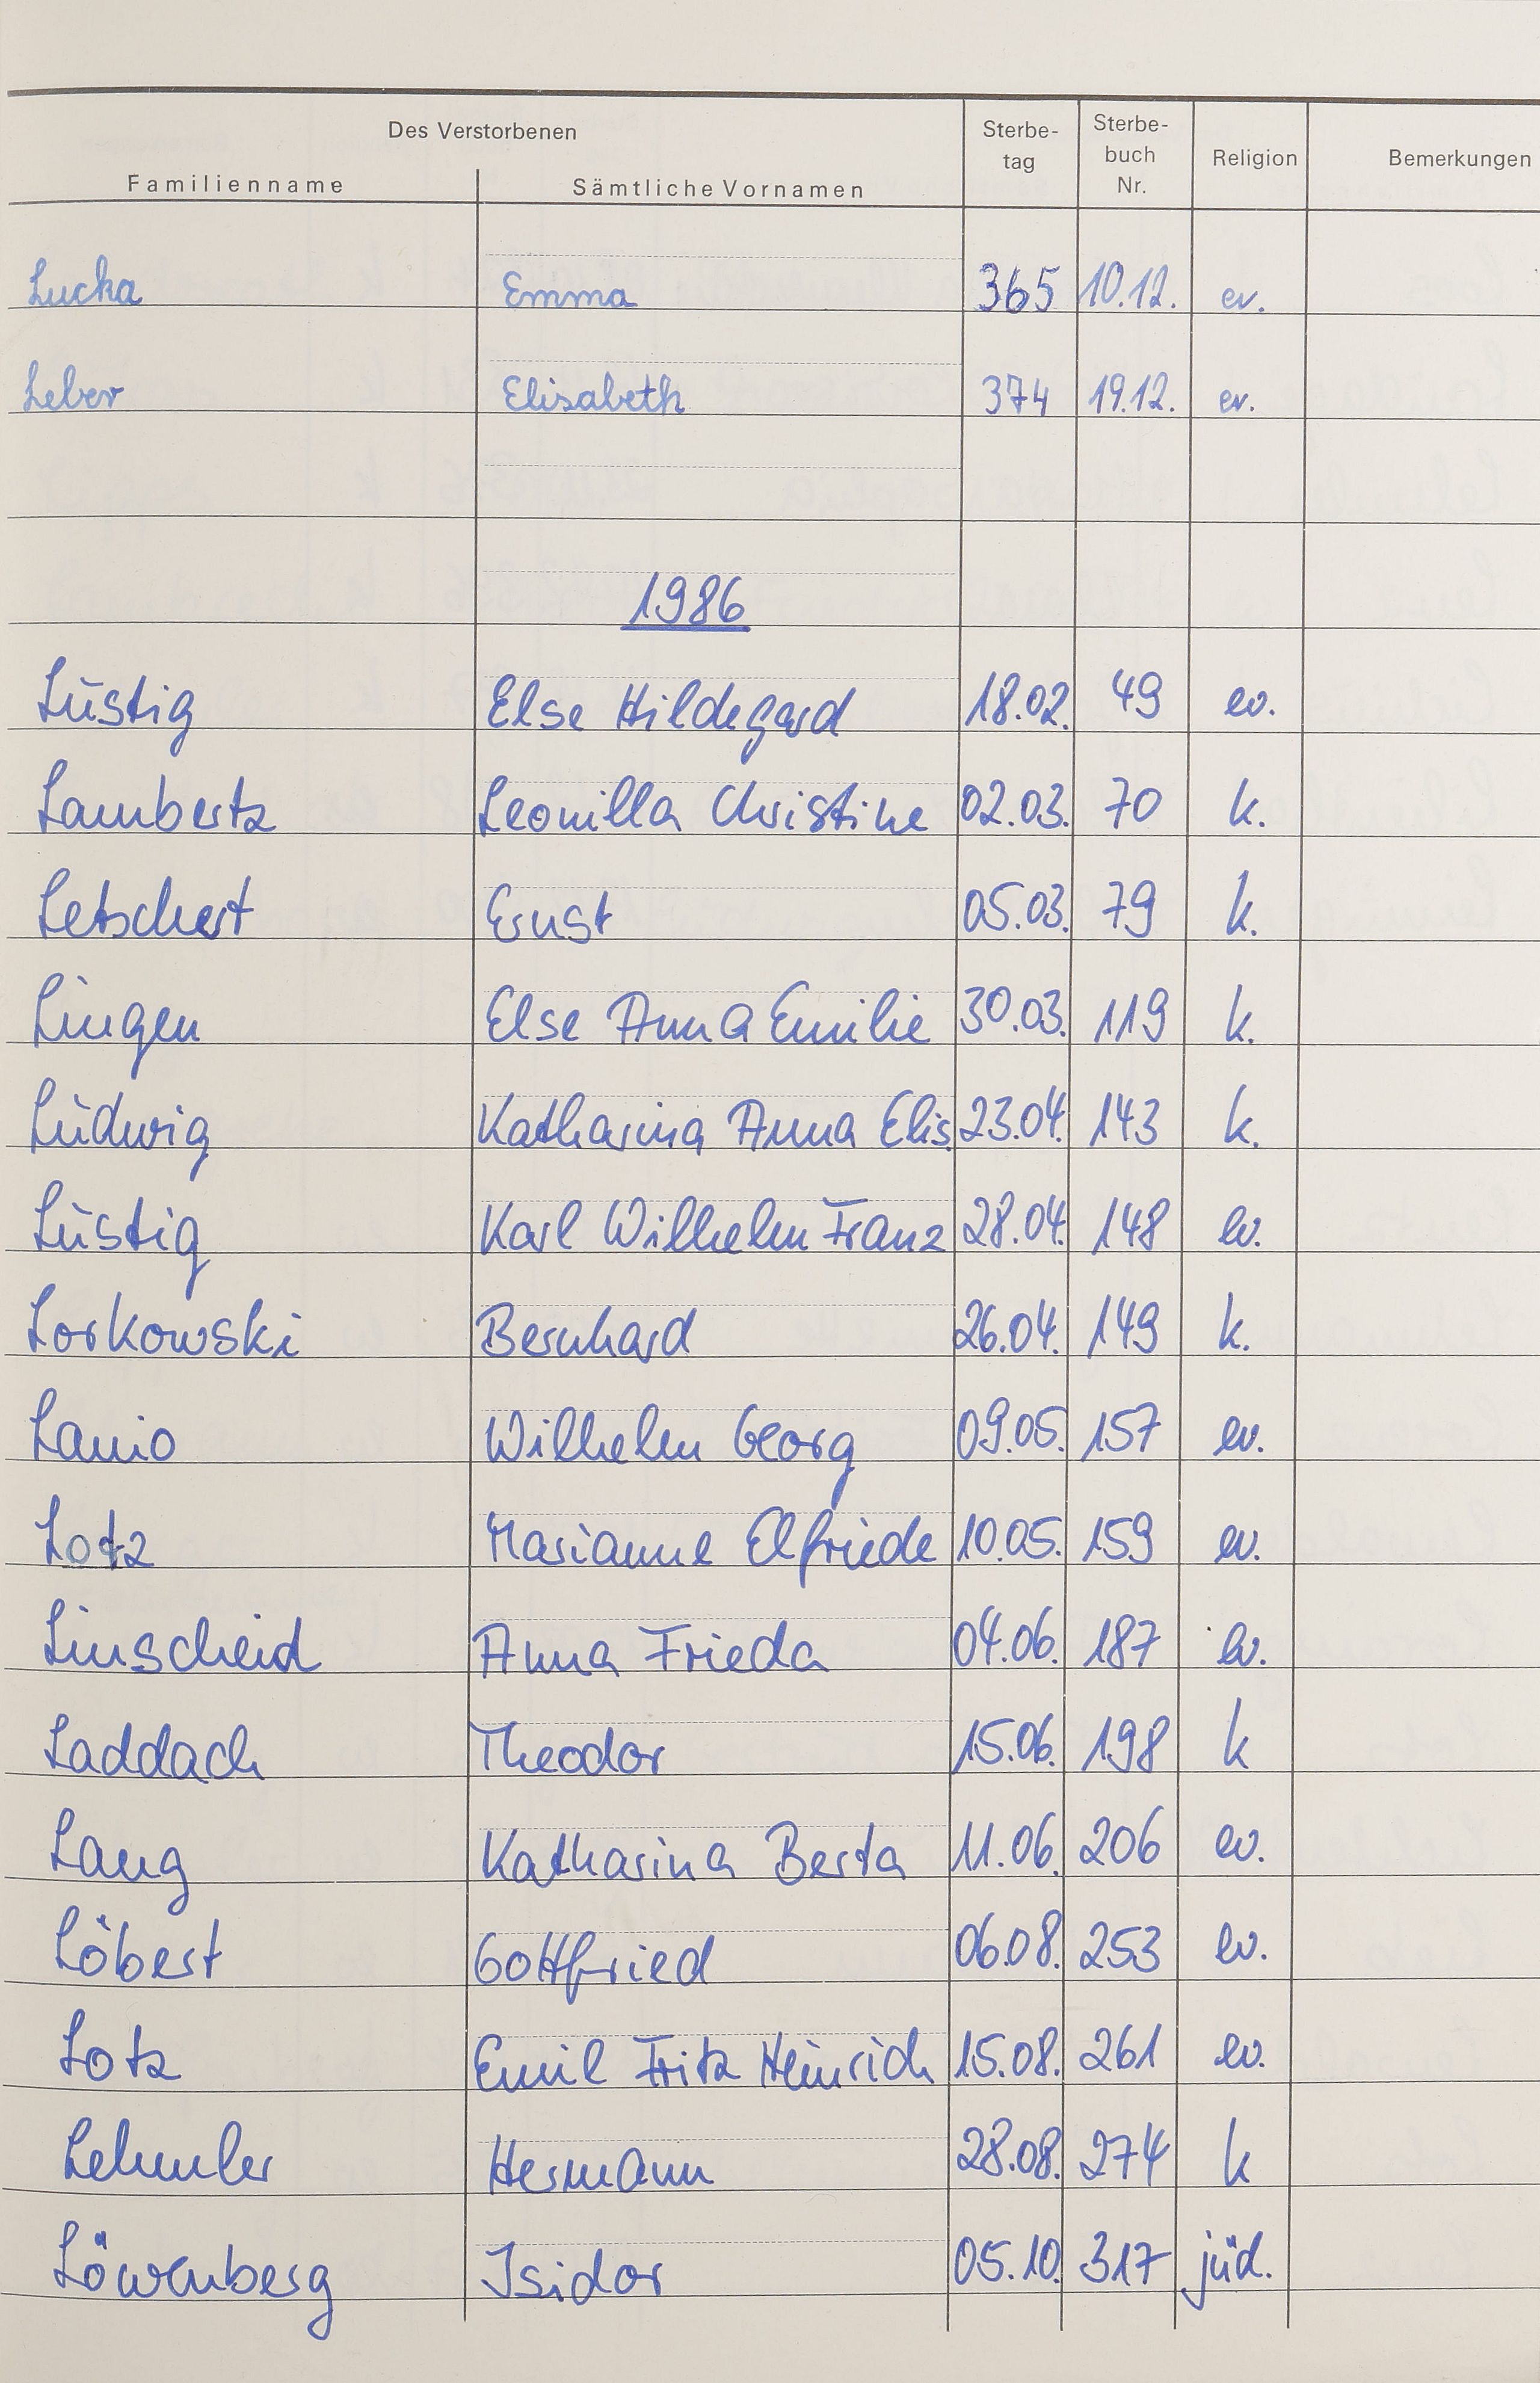 Des Verstorbenen
Familienname Sämtliche Vornamen Sterbe-tag Sterbe-buch Nr. Religion Bemerkungen
Lucka Emma 365 10.12. ev.
Leber Elisabeth 374 19.12. ev.
1986
Lustig Else Hildegard 18.02. 49 ev.
Lambertz Leonilla Christine 02.03. 70 k.
Letschert Ernst 05.03. 79 k.
Lingen Else Anna Emilie 30.03. 119 k.
Ludwig Katharina Anna Elis. 23.04. 143 k.
Lustig Karl Wilhelm Franz 28.04. 148 ev.
Lorkowski Bernhard 26.04. 149 k.
Lanio Wilhelm Georg 09.05. 157 ev.
Lotz Marianne Elfriede 10.05. 159 ev.
Linscheid Anna Frieda 04.06. 187 ev.
Laddach Theodor 15.06. 198 k
Lang Katharina Berta 11.06. 206 ev.
Löbert Gottfried 06.08. 253 ev.
Lotz Emil Fritz Heinrich 15.08. 261 ev.
Lehmler Hermann 28.08. 274 k
Löwenberg Isidor 05.10. 317 jüd.